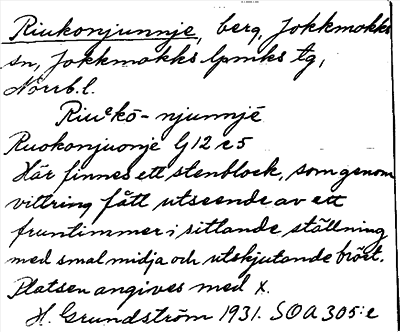 Riukonjunnje, berg, Jokkmokks
sn, Jokkmokks lpmks tg,
Norrb. l.
Riuᵉkō-njunnjē
Ruokonjuonje G 12 r 5
Här finnes ett stenblock, som genom
vittring fått utseende av ett
fruntimmer i sittande ställning
med smal midja och utskjutande bröst.
Platsen angives med x.
H. Grundström 1931. SOA 305:2